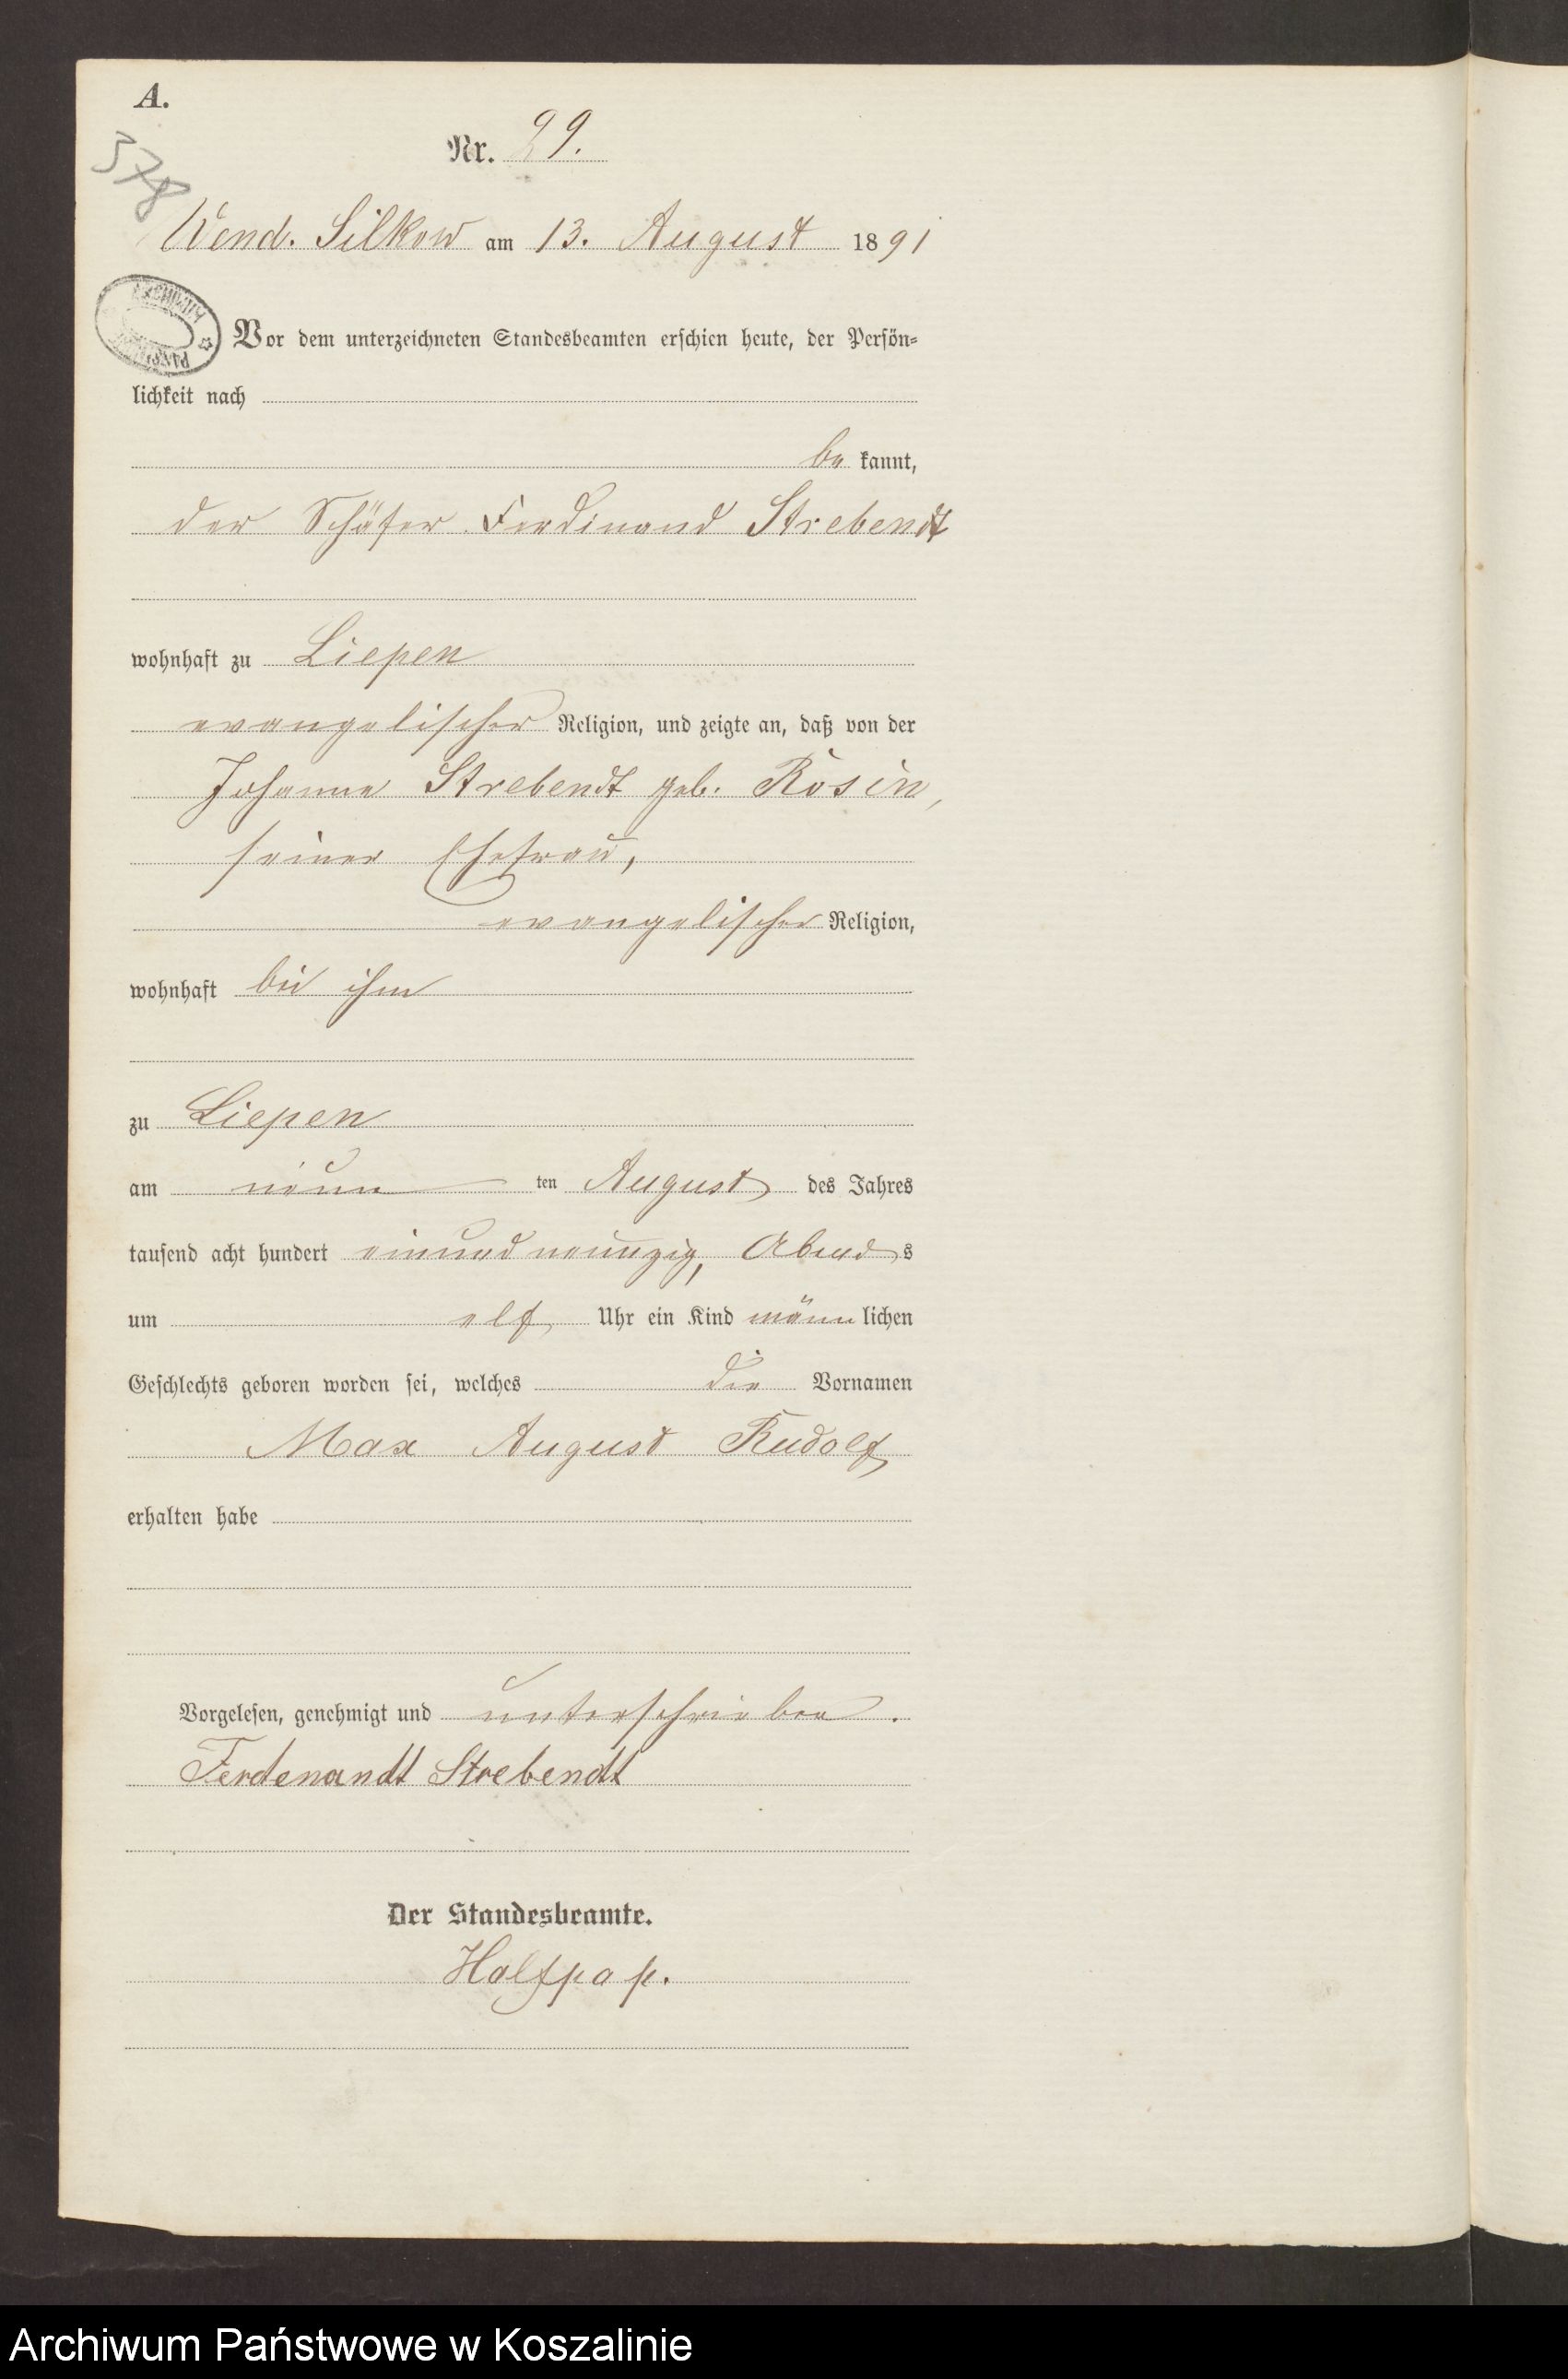 A.
578
Nr. 29.
Wend. Silkow am 13. August 1891
ARCHIWUM
Vor dem unterzeichneten Standesbeamten erschien heute, der Persön-
lichkeit nach
be kannt,
der Schäfer Ferdinand Strebendt
wohnhaft zu Liepen
evangelischer Religion, und zeigte an, daß von der
Johanne Strebendt geb. Rosin,
seiner Ehefrau,
evangelischer Religion,
wohnhaft bei ihm
zu Liepen
am neun ten August des Jahres
tausend acht hundert einundneunzig, Abends
um elf Uhr ein Kind männlichen
Geschlechts geboren worden sei, welches die Vornamen
Max August Rudolf
erhalten habe
Vorgelesen, genehmigt und unterschrieben.
Ferdenandt Strebendt
Der Standesbeamte.
Halfpap.
Archiwum Państwowe w Koszalinie